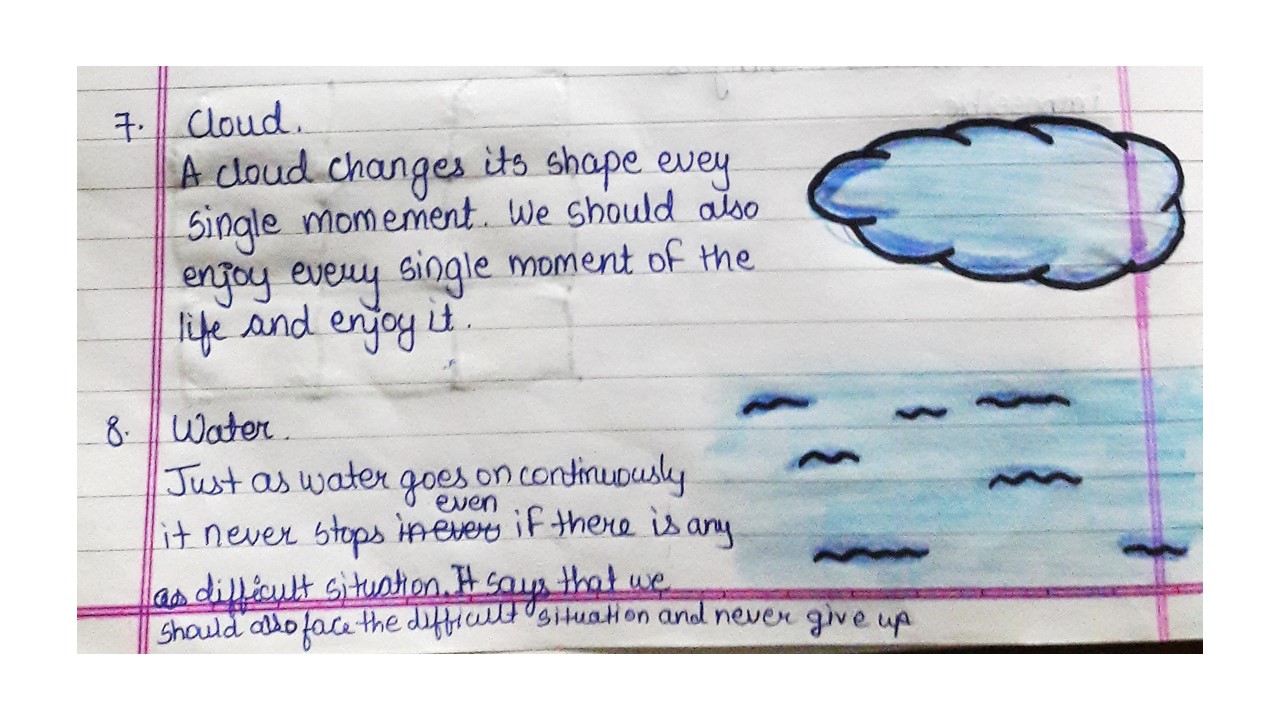 7. Cloud.
A cloud changes its shape evey
single momement. We should also
enjoy every single moment of the
life and enjoy it.
8. Water.
Just as water goes on continuously
even
it never stops in ever if there is any
as difficult situation. It says that we
should also face the difficult situation and never give up